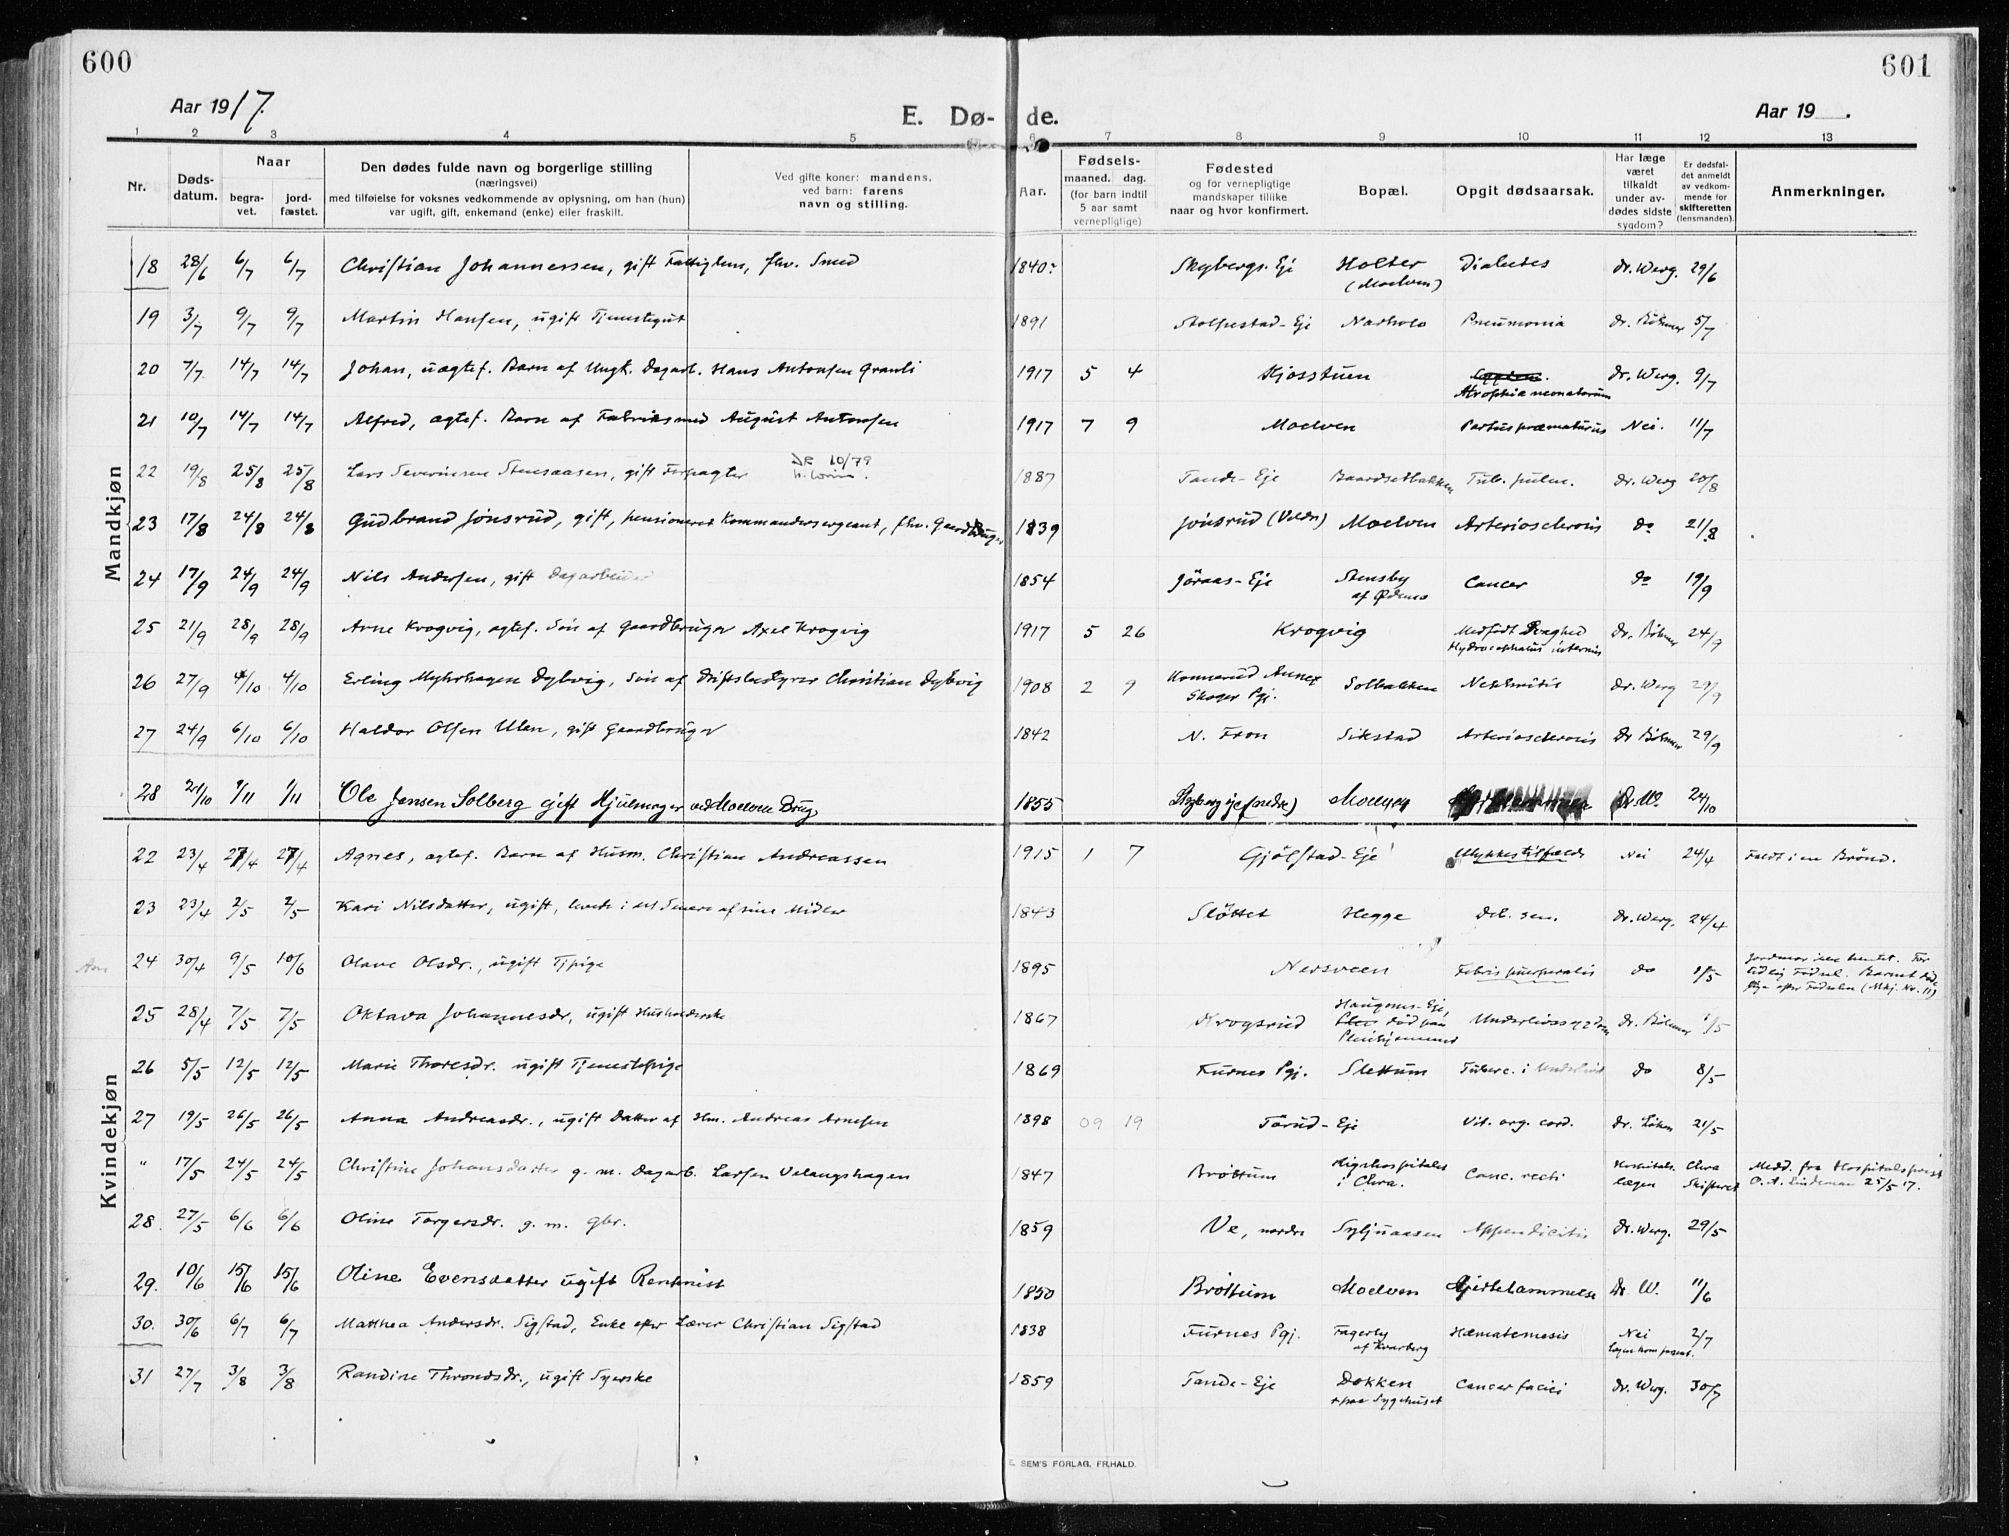 600
601
Aar 1917.
E. Døde.
Aar 19 .
1 2 3 4 5 6 7 8 9 10 11 12 13
Nr. Døds-datum. Naar begra-vet. jord-fæstet. Den dødes fulde navn og borgerlige stilling (næringsvei) med tilføielse for voksnes vedkommende av oplysning, om han (hun) var ugift, gift, enkemand (enke) eller fraskilt. Ved gifte koner: mandens, ved barn: farens navn og stilling. Aar. Fødsels- maaned. dag. (for barn indtil 5 aar samt vernepligtige) Fødested og for vernepligtige mandskaper tillike naar og hvor konfirmert. Bopæl. Opgit dødsaarsak. Har læge været tilkaldt under av-dødes sidste sygdom? Er dødsfal-det anmeldt av vedkom-mende for skifteretten (lensmanden). Anmerkninger.
Mandkjøn
18 28/6 6/7 6/7 Christian Johannessen, gift Fattiglem, fhv. Smed 1840 Skybergs. Eje Holter (Moelven) Diabetes Dr. Werg. 29/6
19 3/7 9/7 9/7 Martin Hansen, ugift Tjenestegut 1891 Stolpestad-Eje Narholo Pneumonia Dr. Böhmer 5/7
20 7/7 14/7 14/7 Johan, uægtef. Barn af Ungk. Dagarb. Hans Antonsen Granli 1917 5 4 Kjosstuen Atrophia neonatorum Dr. Werg. 9/7
21 10/7 14/7 14/7 Alfred, ægtef. Barn af Fabriksmed August Antonsen 1917 7 9 Moelven Partus præmaturus Nei. 11/7
22 19/8 25/8 25/8 Lars Severinsen Stensaasen, gift Forpagter DR 10/79 1887 Tande-Eje Baardsetbakken Tub. pulm. Dr. Werg 20/8
23 17/8 24/8 24/8 Gudbrand Jønsrud, gift, pensioneret Kommandersergeant, fhv. Gaardbruger 1839 Jønsrud (Veldre) Moelven Arteriosclerosis do 21/8
24 17/9 24/9 24/9 Nils Andersen, gift Dagarbeider 1854 Jöraas-Eje Stensby af Ødenes Cancer do 19/9
25 21/9 28/9 28/9 Arne Krogvig, ægtef. Søn af Gaardbruger Axel Krogvig 1917 5 26 Krogvig Medfødt Svaghed Hydrocephalus internus Dr. Böhmer 24/9
26 27/9 4/10 4/10 Erling Myhrhagen Dybvig, Søn af Driftsbestyrer Christian Dybvig 1908 2 9 Konnerud Annex Skoger Pgj. Solbakken Nephritis Dr. Werg 29/9
27 24/9 6/10 6/10 Haldor Olsen Ulen, gift Gaardbruger 1842 N. Fron Sikstad Arteriosclerosis Dr Böhmer 29/9
28 21/10 1/11 1/11 Ole Jensen Solberg gift Hjulmager ved Moelven Brug 1855 Skyberg eje (nedre) Moelven Dr. W. 24/10
Kvindekjøn
22 23/4 27/4 27/4 Agnes, ægtef. Barn af Husm. Christian Andreassen 1915 1 7 Gjölstad-Eje Ulykkestilfælde Nei 24/4 Faldt i en Brönd.
23 23/4 2/5 2/5 Kari Nilsdatter, ugift, levede i det Senere af sine Midler 1843 Slöttet Hegge Deb. sen. Dr. Werg. 24/4
24 30/4 9/5 10/6 Olave Olsdr., ugift Tjpige 1895 Nersveen Febris puerperalis do 1/5 Jordmor ikke hentet. For tidlig Födsel. Barnet döde strax efter Födselen (Mkj. Nr. 11)
25 28/4 7/5 7/5 Oktava Johannesdr, ugift Husholderske 1867 Krogsrud Haugenes-Eje, død paa Pleiehjemmet Underlivssygdom Dr. Böhmer 1/5
26 5/5 12/5 12/5 Marie Thoresdr. ugift Tjenestepige 1869 Furnes Pgj. Slettum Tuberc. i Underlivet do 8/5
27 19/5 26/5 26/5 Anna Andreasdr., ugift Datter af Hm. Andreas Arnesen 1898 09 19 Törud-Eje Vit. org. cord. Dr. Löken 21/5
" 17/5 24/5 24/5 Christine Johansdatter g. m. Dagarb. Larsen Velangshagen 1847 Brøttum Rigshospitalet i Chra. Canc. recti Hospitals-lægen Chra Skifteret Medd. fra Hospitalsprest O. A. Lindeman 25/5 17.
28. 27/5 6/6 6/6 Oline Torgersdr. g. m. gbr. 1859 Ve, nordre Syljuaasen Appendicitis Dr. Werg. 29/5
29. 10/6 15/6 15/6 Oline Evensdatter ugift Rentenist 1850 Brøttum Moelven Hjertelammelse Dr. W. 11/6
30. 30/6 6/7 6/7 Matthea Andersdr. Sigstad, Enke efter Lærer Christian Sigstad 1838 Furnes Pgj. Fagerby af Kvarberg Hæmatemesis Nei Lægen kom forsent. 2/7
31 27/7 3/8 3/8 Randine Throndsdr., ugift Syerske 1859 Tande-Eje Dokken + paa Sygehuset Cancer faciei Dr. Werg. 30/7
E. SEM'S FORLAG, FR.HALD.